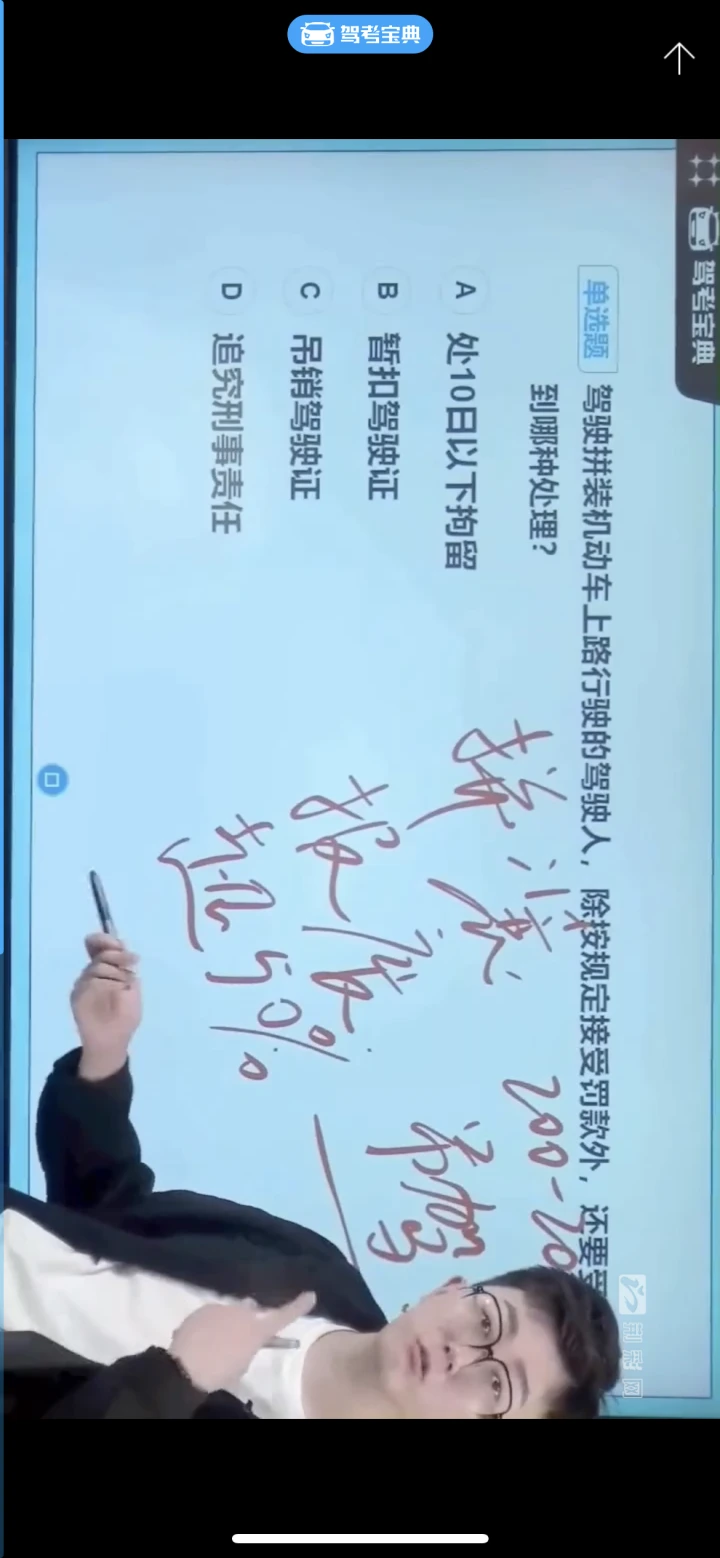 驾考宝典
驾考宝典
单选题 驾驶拼装机动车上路行驶的驾驶人，除按规定接受罚款外，还要受
到哪种处理？
A 处10日以下拘留
B 暂扣驾驶证
C 吊销驾驶证
D 追究刑事责任
拼装
200-20
报废
吊驾
超50%